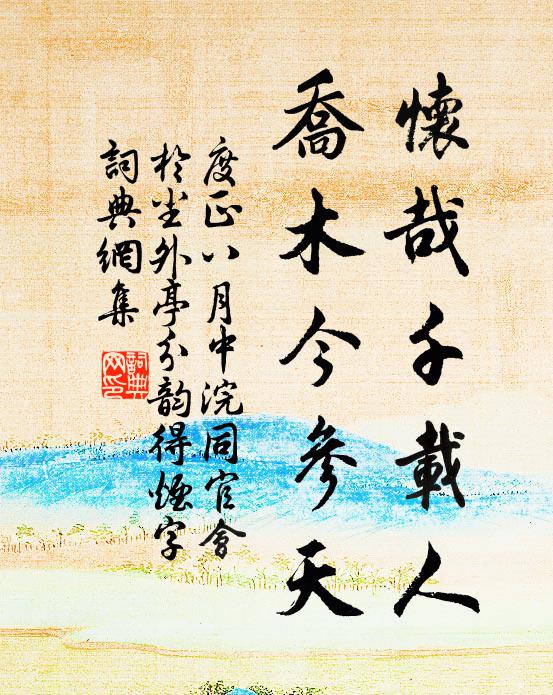 懷哉千載人
喬木今參天
度正八月中浣同官會
於尘外亭分韵得煙字
詞典網集
詞典网印